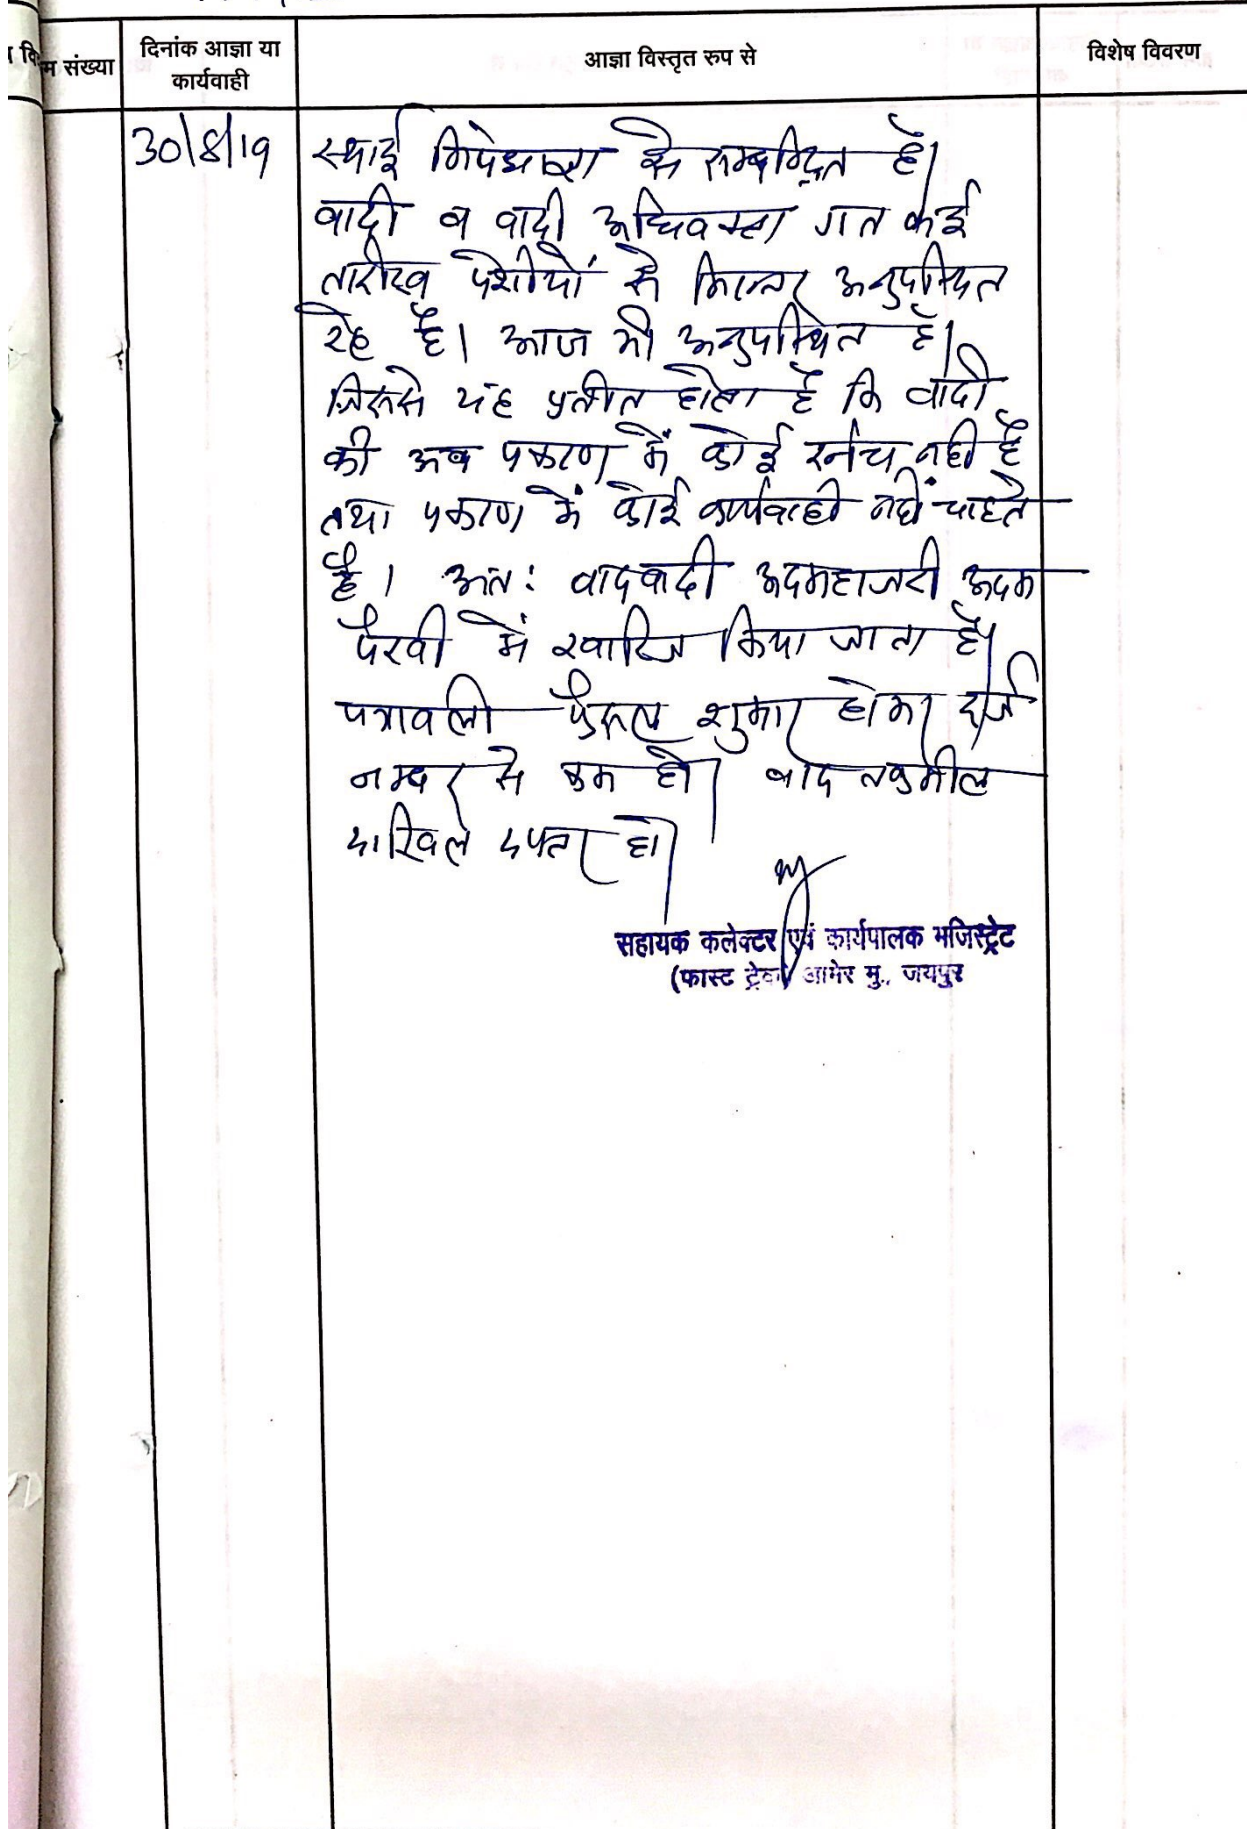 म संख्या
दिनांक आज्ञा या
कार्यवाही
आज्ञा विस्तृत रुप से
विशेष विवरण
30/8/19
स्थाई निषेधाज्ञा से सम्बन्धित है।
वादी व वादी अधिवक्ता गत कई
तारीख पेशीयों से निरन्तर अनुपस्थित
रहे है। आज भी अनुपस्थित है।
जिससे यह प्रतीत होता है कि वादी
की अब प्रकरण में कोई रूचि नहीं है
तथा प्रकरण में कोई कार्यवाही नहीं चाहते
है। अतः वादवादी अदमहाजरी अदम
पैरवी में खारिज किया जाता है।
पत्रावली फैसल शुमार होकर दर्ज
नम्बर से कम हो। बाद तकमील
दाखिल दफ्तर हो।
सहायक कलेक्टर एवं कार्यपालक मजिस्ट्रेट
(फास्ट ट्रेक) आमेर मु., जयपुर